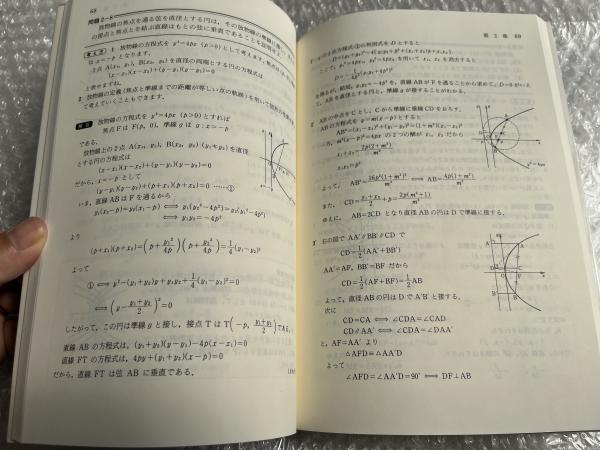 68
問題2−8
放物線の焦点を通る弦を直径とする円は，その放物線の準線に接し，
の接点と焦点とを結ぶ直線はもとの弦に垂直であることを証明せよ。
考え方 1 放物線の方程式を y²=4px (p>0) として考えます。焦点は
は x=−p となります。
2点 A(x₁, y₁), B(x₂, y₂) を直径の両端とする円の方程式は
(x−x₁)(x−x₂)+(y−y₁)(y−y₂)=0
と表せますね。
2 放物線の定義(焦点と準線までの距離が等しい点の軌跡)を用いて図形的
て考えていくこともできます。
解答 1 放物線の方程式を y²=4px (p>0) とすれば
焦点 F は F(p, 0), 準線 g は g : x=−p
である。
放物線上の2点 A(x₁, y₁), B(x₂, y₂) (y₁≠y₂) を直径
とする円の方程式は
(x−x₁)(x−x₂)+(y−y₁)(y−y₂)=0
だから，x=−p として
(y−y₁)(y−y₂)+(p+x₁)(p+x₂)=0 ……①
いま，直線 AB は F を通るから
y₁(x₂−p)=y₂(x₁−p) ⟺ y₁(y₂²−4p²)=y₂(y₁²−4p²)
⟺ y₁y₂=−4p²
より
(p+x₁)(p+x₂)=(p+y₁²/4p)(p+y₂²/4p)=1/4(y₁−y₂)²
よって
① ⟺ y²−(y₁+y₂)y+y₁y₂+1/4(y₁−y₂)²=0
⟺ (y−(y₁+y₂)/2)²=0
したがって，この円は準線 g と接し，接点 T は T(−p, (y₁+y₂)/2)
直線 AB の方程式は，(y₁+y₂)(y−y₁)−4p(x−x₁)=0
直線 FT の方程式は，4py+(y₁+y₂)(x−p)=0
だから，直線 FT は弦 AB に垂直である。
第 2 章 69
の判別式を D とすると
を用いて x₁, x₂ を消去すると
を得るが，結局，y₁y₂=−4p² を，直線 AB が F を通ることから求めて，
て，AB を直径とする円と，準線 g が接することがわかる。
2 AB の中点を C とし，C から準線に垂線 CD をおろす。
AB の方程式を y=m(x−p) とすると
AB²=(x₁−x₂)²+(y₁−y₂)²=(1+m²)(x₁−x₂)²
の2つの解が x₁, x₂ だから
x₁x₂=p²
よって，AB²=16p²(1+m²)²/m⁴ ⟺ AB=4p(1+m²)/m²
また，CD=(x₁+x₂)/2+p=2p(m²+1)/m²
ゆえに，AB=2CD となり直径 AB の円は D で準線に接する。
3 右の図で AA′∥BB′∥CD で
CD=1/2(AA′+BB′)
AA′=AF, BB′=BF だから
CD=1/2(AF+BF)=1/2AB
よって，直径 AB の円は D で A′B′ と接する。
次に
CD=CA ⟺ ∠CDA=∠CAD
CD∥AA′ ⟺ ∠CDA=∠DAA′
と，AF=AA′ より
△AFD≡△AA′D
よって
∠AFD=∠AA′D=90° ⟺ DF⊥AB